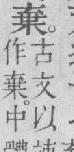 棄。
古文以
作棄。中